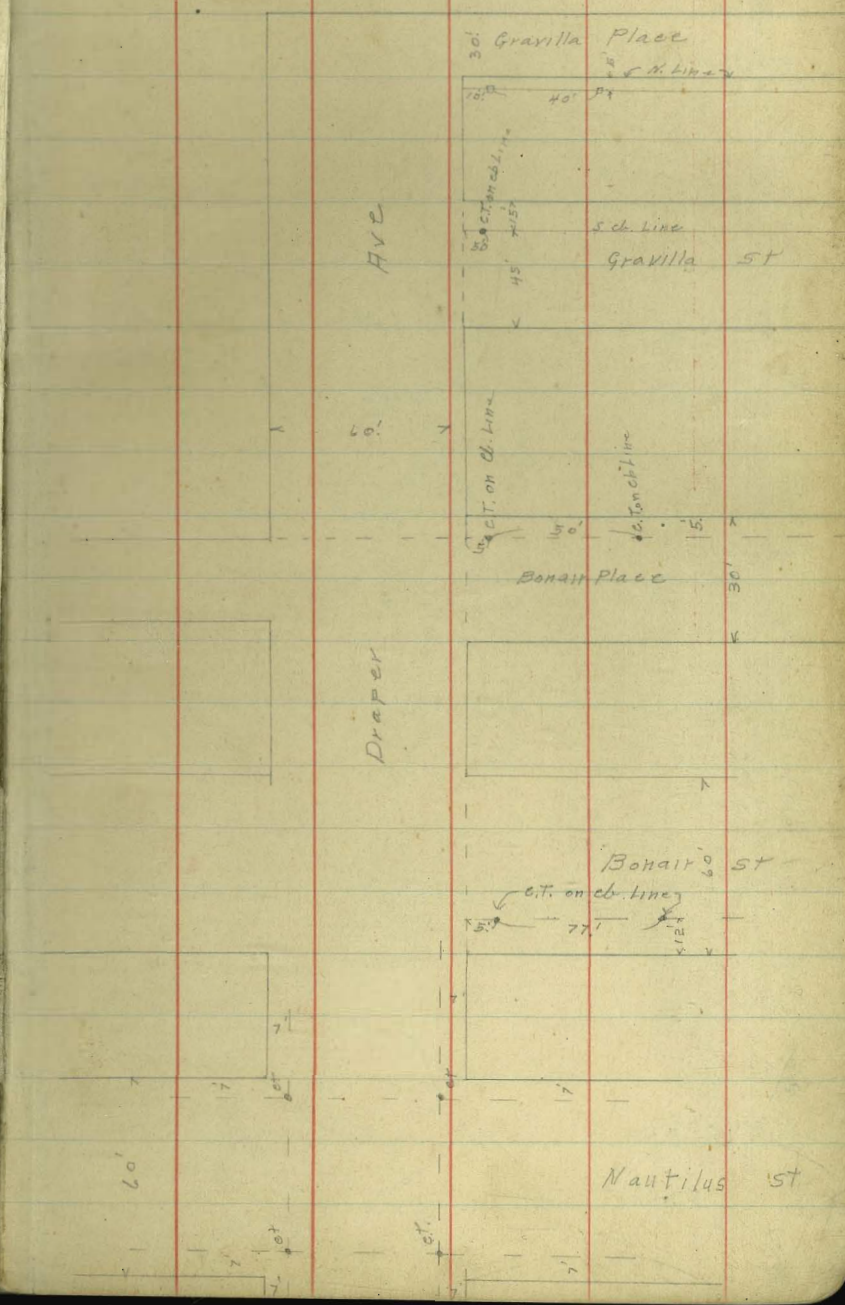 30' Gravilla Place
N. Line
10' 40'
C.T. on cb Line
15'
5'
S cb. Line
Gravilla St
45'
Ave
60'
C.T. on cb. Line
C.T. on cb Line
5'
5'
Bonair Place
30'
Draper
Bonair St
60'
C.T. on cb. Line
5' 77' 12'
7'
7' ct ct 7'
60'
Nautilus St
ct c.t.
7' 7'
7' 7'